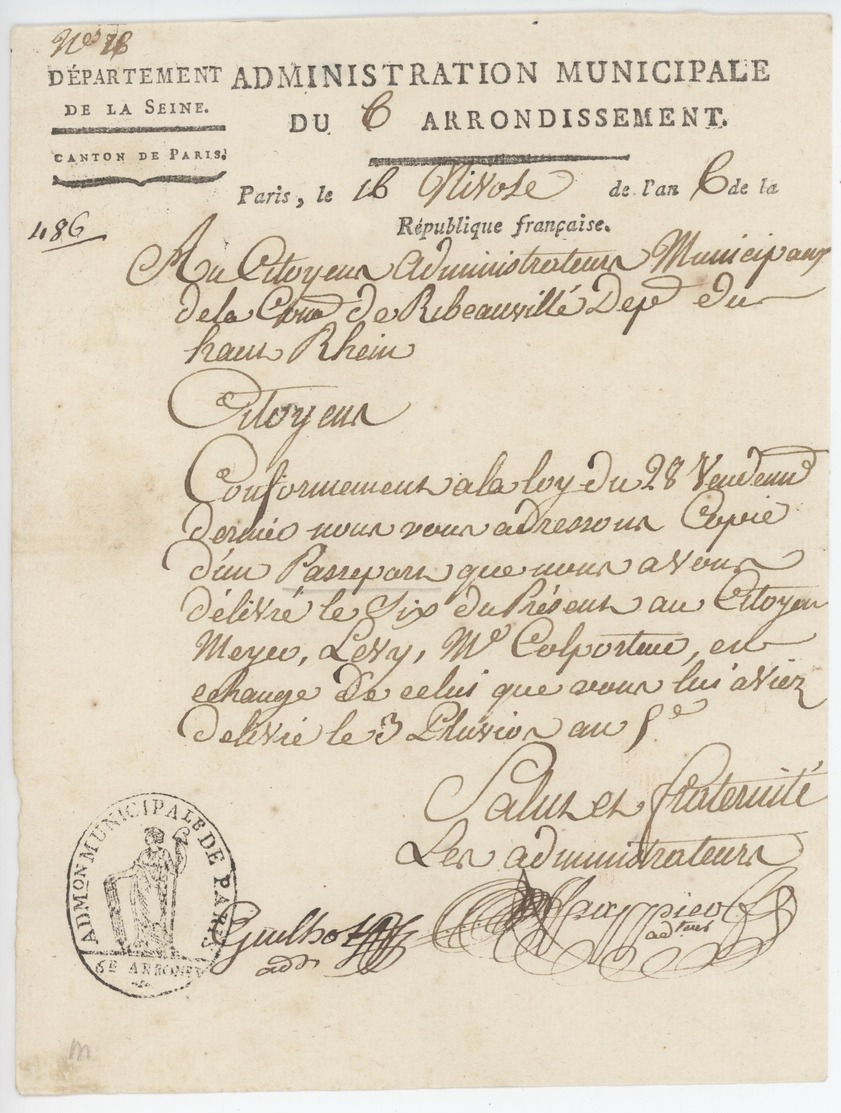 Nos 16
DÉPARTEMENT
DE LA SEINE.
CANTON DE PARIS.
ADMINISTRATION MUNICIPALE
DU 6 ARRONDISSEMENT.
Paris, le 16 Nivose de l'an 6 de la
République française.
486
Au Citoyens Administrateurs Municipaux
de la Com de Ribeauvillé Depd du
haut Rhein
Citoyens
Conformement a la loy du 28 Vendemd
dernier nous vous adressons Copie
d'un Passeport que nous avons
délivré le Six du Présent au Citoyen
Meyer, Levy, Md Colporteur, en
echange de celui que vous lui aviez
délivré le 3 Pluviose an 5e
Salut et fraternité
Les administrateurs
Guilhot
adr
adteur
ADMON MUNICIPALE DE PARIS
6E ARRONDT
m